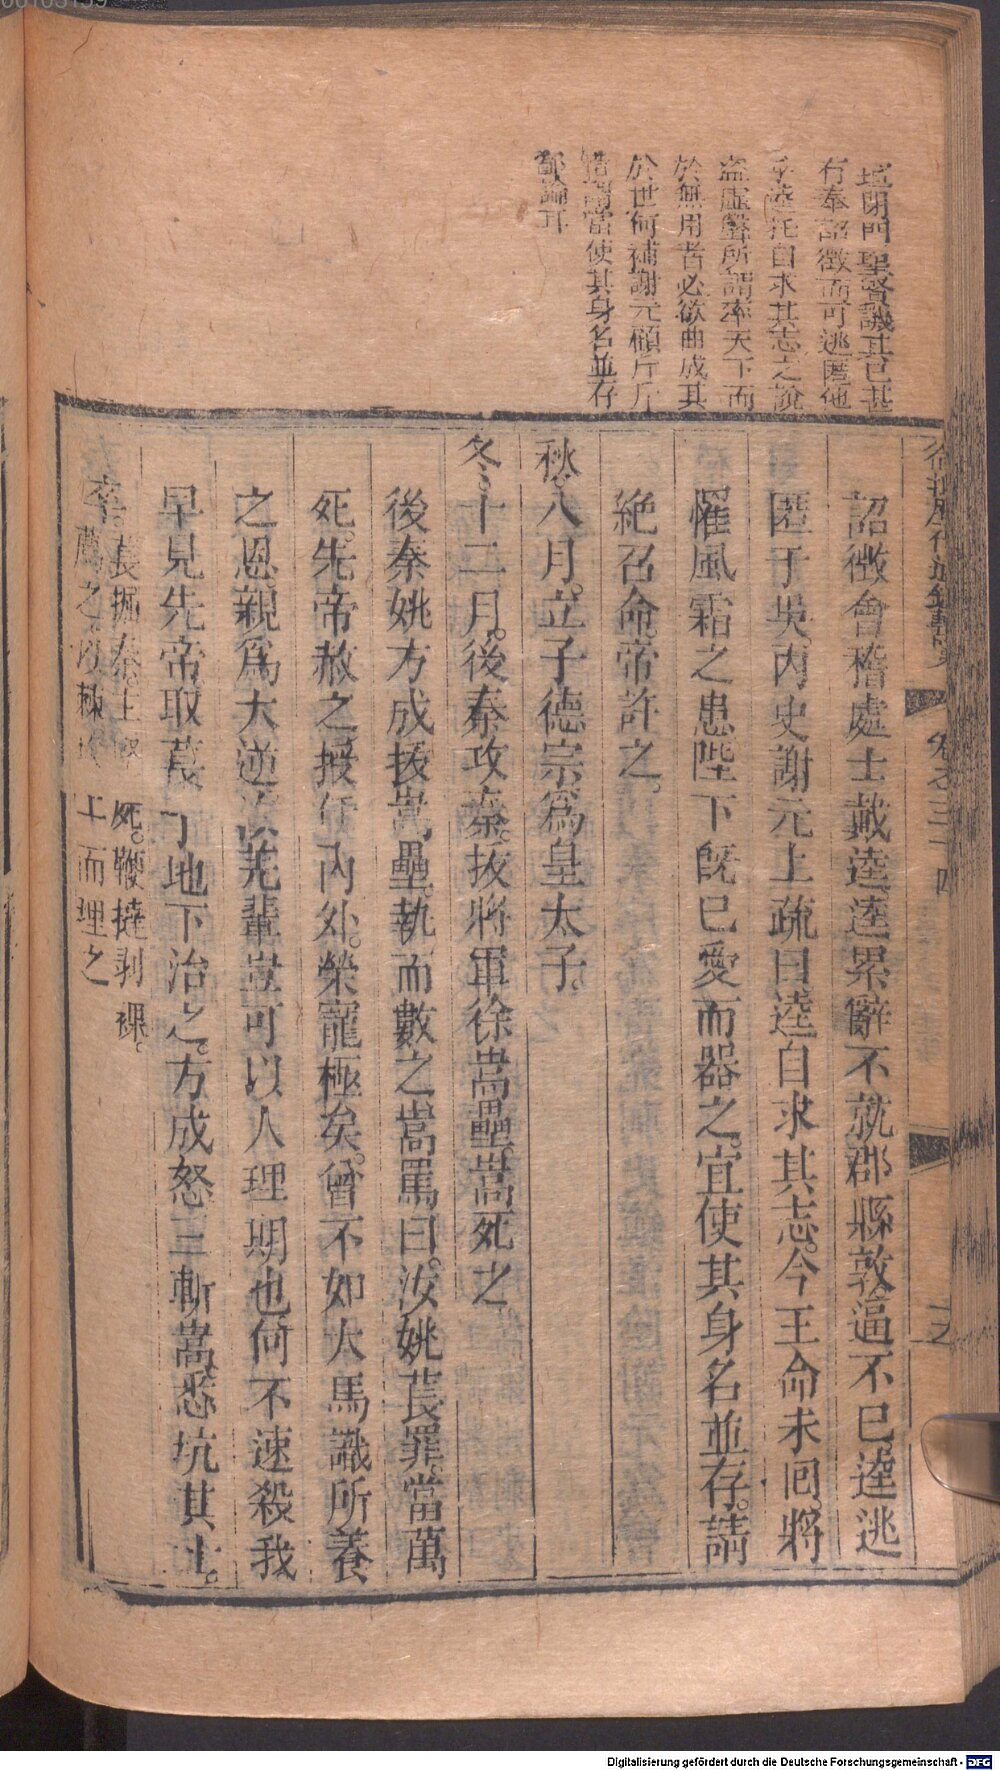 閉門聖賢譏其已甚
有奉詔徵而可逃匿他
逵托自求其志之說
盗虛聲所謂率天下而
於無用者必欲曲成其
於世何補謝元顧斤斤
謂當使其身名並存
鄙論耳
詔徵會稽處士戴逵逵累辭不就郡縣敦逼不已逵逃
匿于吳內史謝元上疏曰逵自求其志今王命未囘將
罹風霜之患陛下旣已愛而器之宜使其身名並存請
絶召命帝許之
秋八月立子德宗爲皇太子
冬十二月後秦攻秦拔將軍徐嵩壘嵩死之
後秦姚方成拔嵩壘執而數之嵩罵曰汝姚萇罪當萬
死先帝赦之授任內外榮寵極矣曾不如犬馬識所養
之恩親爲大逆汝羌輩豈可以人理期也何不速殺我
早見先帝取萇于地下治之方成怒三斬嵩悉坑其士
卒 萇掘秦主堅 死鞭撻剥裸
薦之以棘 而理之
Digitalisierung gefördert durch die Deutsche Forschungsgemeinschaft - DFG